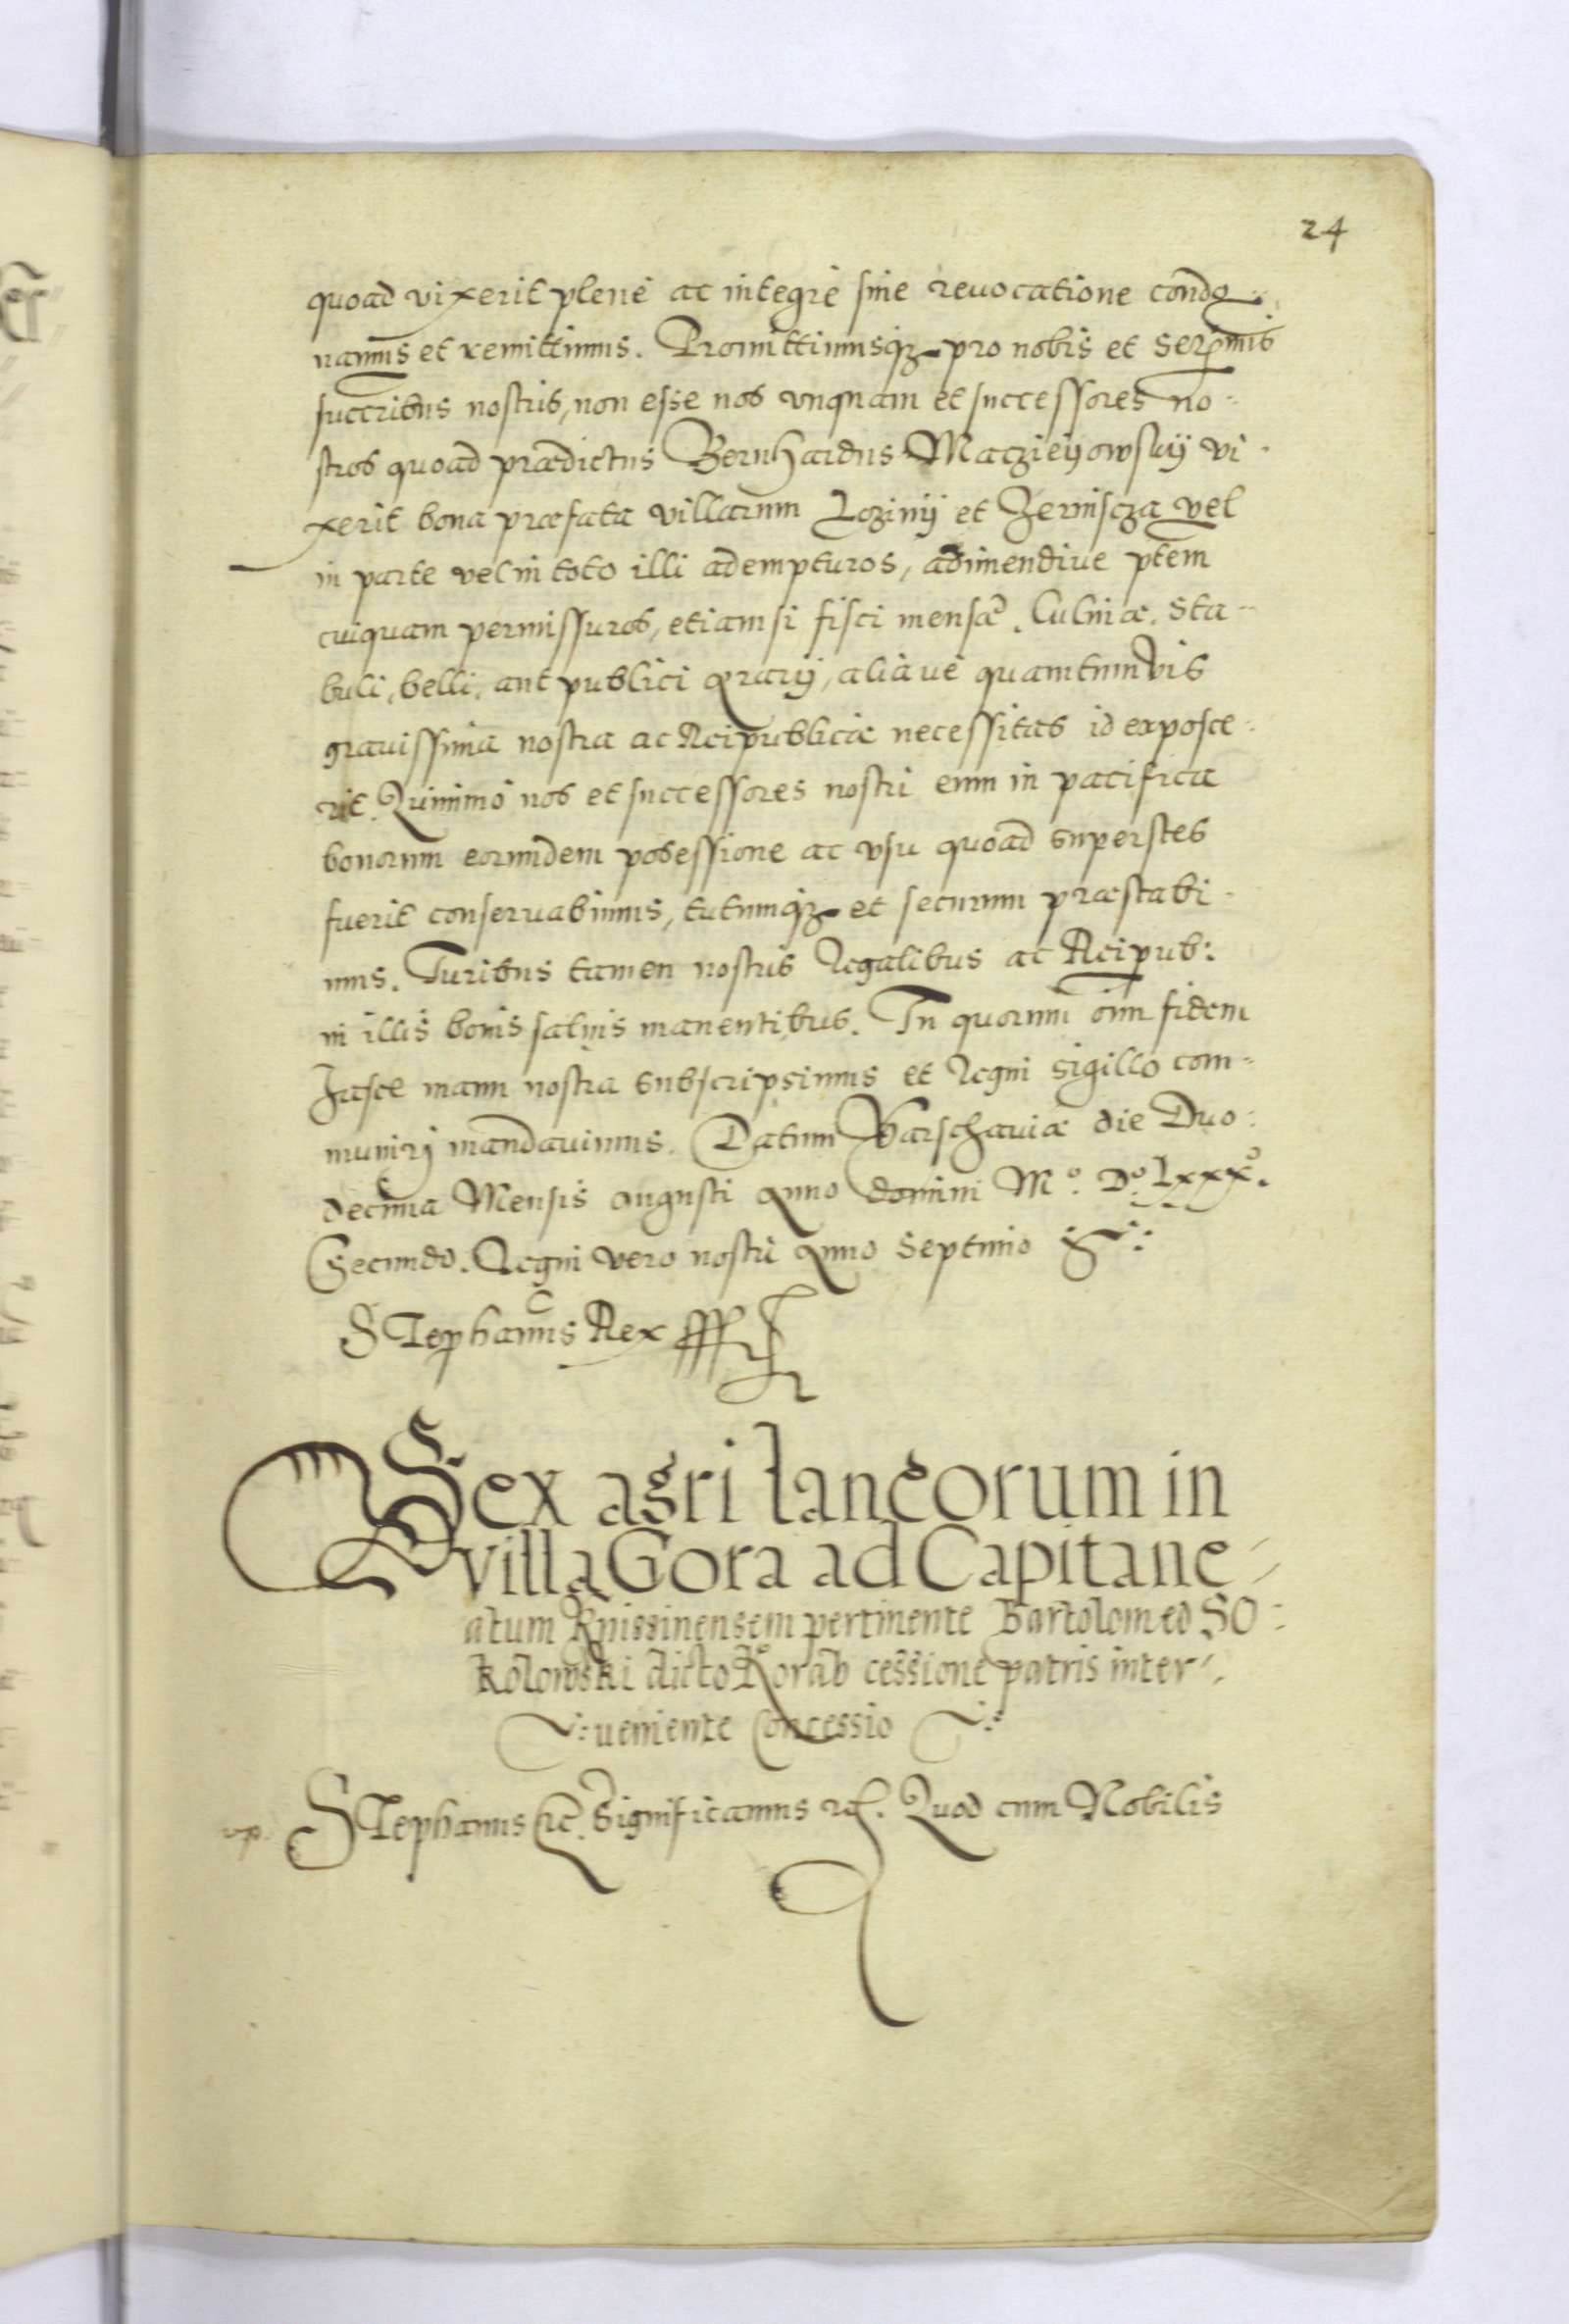 24
quoad vixerit plenè ac integrè sine revocatione condo
namus et remittimus. Promittimusq; pro nobis et Sermis
succribus nostris, non esse nos vnquam et successores no-
stros quoad prædictus Bernhardus Maczieyowsky vi-
xerit bona præfata villarum Loziny et Zerniscza vel
in parte vel in toto illi adempturos, adimendive ptem
cuiquam permissuros, etiam si fisci mensæ. Culinæ. Sta-
buli, belli, aut publici ærarij, aliàuè quamtumvis
gravissima nostra ac Reipublicæ necessitas id exposce-
rit. Quinimò nos et successores nostri eum in pacifica
bonorum eorumdem posessione ac vsu quoad superstes
fuerit conservabimus, tutumq; et securum præstabi-
mus. Iuribus tamen nostris Regalibus ac Reipub:
in illis bonis salvis manentibus. In quorum oim fidem
hasce manu nostra subscripsimus et Regni sigillo com-
munirj mandavimus. Datum Varschaviæ die Duo-
decima Mensis Augusti Anno domini Mº. Dº. lxxxº.
Secundo. Regni vero nostri Anno Septimo
Stephanus Rex
Sex agri laneorum in
villa Gora ad Capitane-
atum Knissinensem pertinente Bartolomeo So-
kolowski dicto Korab cessione patris inter-
ueniente Concessio
Stephanus etc. Significamus etc. Quod cum Nobilis